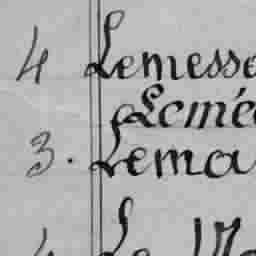 4 Lemesse
Lemé
3. Lema
4 Le Ma